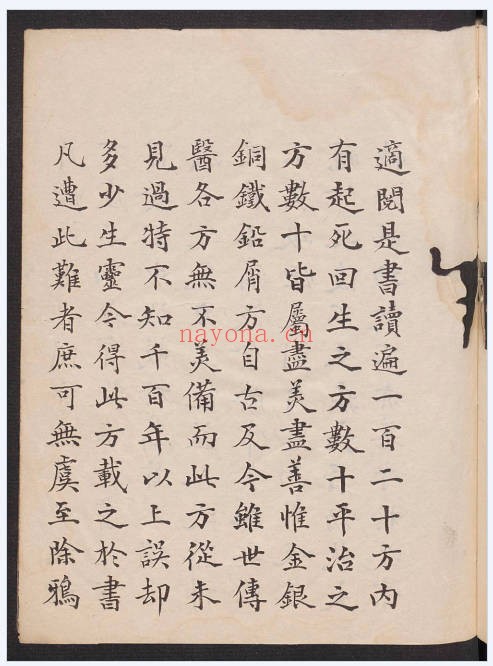 適閱是書讀遍一百二十方內
有起死回生之方數十平治之
方數十皆屬盡美盡善惟金銀
銅鐵鉛屑方自古及今雖世傳
醫各方無不美備而此方從未
見過特不知千百年以上誤却
多少生靈令得此方載之於書
凡遭此難者庶可無虞至除鴉
nayona.cn